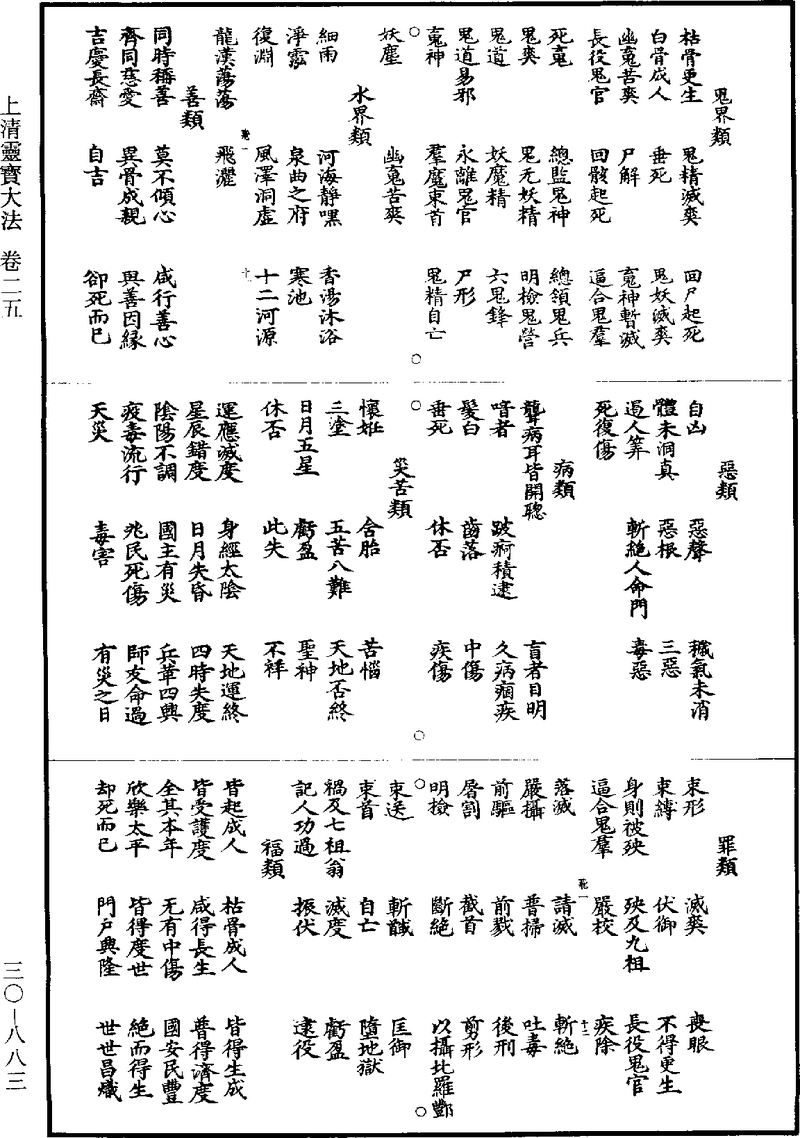 上清靈寶大法 卷二五
三〇-八八三
鬼界類
枯骨更生 鬼精滅爽 回尸起死
白骨成人 垂死 鬼妖滅爽
幽䰟苦爽 尸解 䰟神暫滅
長役鬼官 回骸起死 逼合鬼羣
死䰟 總監鬼神 總領鬼兵
鬼爽 鬼无妖精 明檢鬼營
鬼道 妖魔精 六鬼鋒
鬼道易邪 永離鬼官 尸形
䰟神 羣魔束首 鬼精自亡
妖塵 幽䰟苦爽
水界類
細雨 河海靜嘿 香湯沐浴
淨露 泉曲之府 寒池
復淵 風澤洞虛 十二河源
龍漢蕩蕩 飛灑
善類
同時稱善 莫不傾心 咸行善心
齊同慈愛 異骨成親 與善因緣
吉慶長齋 自吉 卻死而已
惡類
自凶 惡聲 穢氣未消
體未洞真 惡根 三惡
遏人筭 斬絕人命門 毒惡
死復傷
病類
聾病耳皆開聰 盲者目明
喑者 跛痾積逮 久病痼疾
髮白 齒落 中傷
垂死 休否 疾傷
災苦類
懷妊 含胎 苦惱
三塗 五苦八難 天地否終
日月五星 虧盈 聖神
休否 此失 不祥
運應滅度 身經太陰 天地運終
星辰錯度 日月失昏 四時失度
陰陽不調 國主有災 兵革四興
疫毒流行 兆民死傷 師友命過
天災 毒害 有災之日
罪類
束形 滅爽 喪眼
束縛 伏御 不得更生
身則被殃 殃及九祖 長役鬼官
逼合鬼羣 嚴校 疾除
落滅 請滅 斬絕
嚴攝 普掃 吐毒
前驅 前戮 後刑
屠割 截首 剪形
明檢 斷絕 以攝北羅酆
束送 斬馘 匡御
束首 自亡 墮地獄
禍及七祖翁 滅度 虧盈
記人功過 振伏 逮役
福類
皆起成人 枯骨成人 皆得生成
皆受護度 咸得長生 普得濟度
全其本年 无有中傷 國安民豐
欣樂太平 皆得度世 絕而得生
却死而已 門戶興隆 世世昌熾